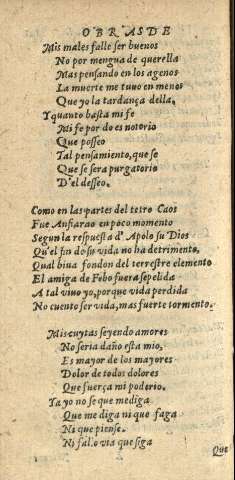 OBRAS DE
Mis males falle ser buenos
No por mengua de querella
Mas pensando en los agenos
La muerte me tuuo en menos
Que yo la tardança della.
Y quanto basta mi fe
Mi fe por do es notorio
Que posseo
Tal pensamiento, que se
Que se sera purgatorio
D'el desseo.
Como en las partes del tetro Caos
Fue Anfiarao en poco momento
Segun la respuesta d' Apolo su Dios
Qu'el fin do su vida no ha detrimento,
Qual biua fondon del terrestre elemento
El amiga de Febo fuera sepelida
A tal viuo yo, porque vida perdida
No cuento ser vida, mas fuerte tormento.
Mis cuytas seyendo amores
No seria daño esta mio,
Es mayor de los mayores
Dolor de todos dolores
Que fuerça mi poderio.
Ya yo no se que me diga
Que me diga ni que faga
Ni que piense.
Ni fallo via que siga
Que